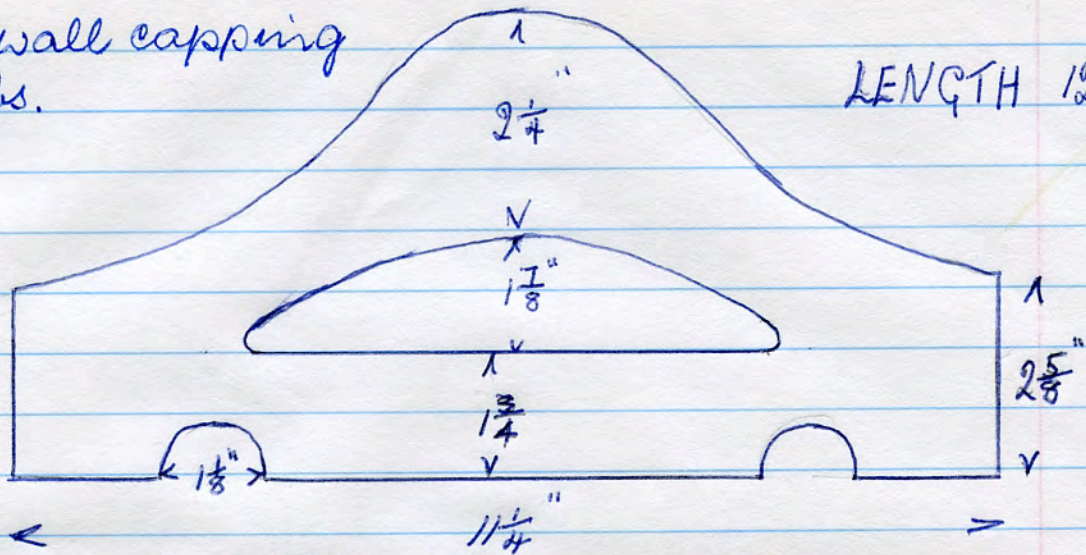 wall capping
LENGTH 12
2 1/4"
1 7/8"
1 3/4
2 5/8"
1 1/8"
11 1/4"